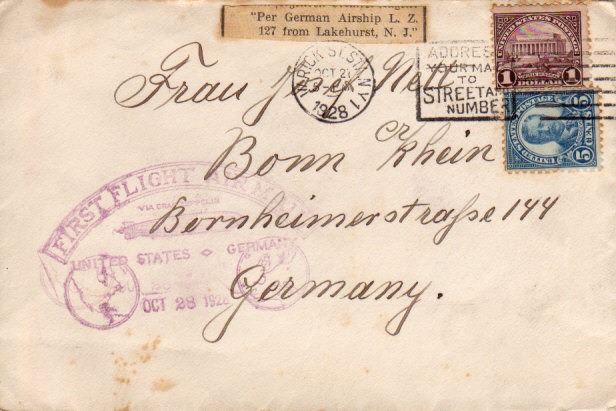 "Per German Airship L. Z.
127 from Lakehurst, N. J."
VARICK ST. STA. N.Y.
OCT 2
1928
1
ADDRES
YOUR MA
TO
STREET A
NUMBE
UNITED STATES POSTAGE
1 1
DOLLAR
UNITED STATES POSTAGE
5 5
CENTS
Frau Josef Nett
Bonn a/Rhein
Bornheimerstraße 144
Germany.
FIRST FLIGHT AIR MAIL
VIA GRAF ZEPPELIN
UNITED STATES GERMANY
OCT 28 1928